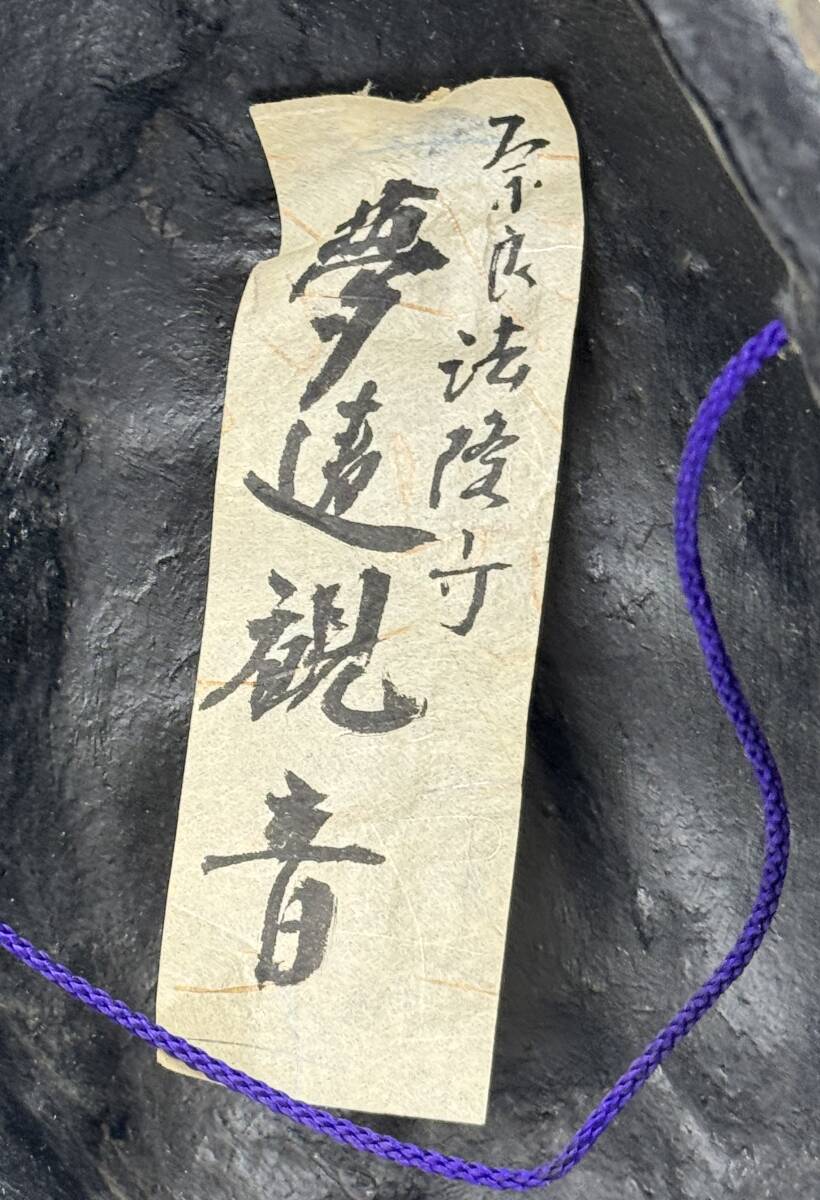 奈良法隆寺
夢違観音